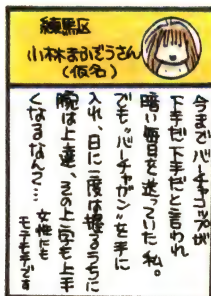 練馬区
小林まかぞうさん
(仮名)
今までバーチャコップが
下手だ下手だと言われ
暗い毎日を送っていた私。
でも“バーチャガン”を手に
入れ、日に一度は握るうちに
腕は上達、その上字も上手
くなるなんて…
女性にも
モテモテです